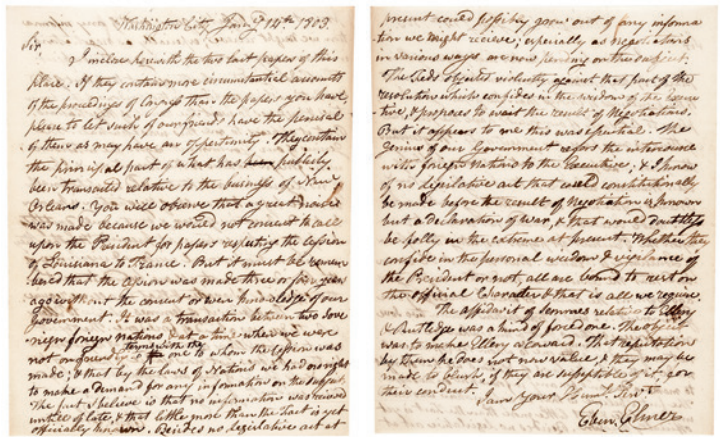 Washington City Jany 14th 1803.
Sir
I inclose herewith the two last papers of this
place. If they contain more circumstantial accounts
of the proceedings of Congress than the papers you have,
please to let such of our friends have the perusal
of them as may have an opportunity. They contain
the principal part of what has been publicly
been transacted relative to the business of New
Orleans. You will observe that a great
was made because we would not consent to call
upon the President for papers respecting the Cession
of Louisiana to France. But it must be remem
bered that the cession was made three or four years
ago without the consent or even knowledge of our
Government. It was a transaction between two sove
reign foreign nations, & at a time when we were
not on friendly terms with the one to whom the Cession was
made; & that by the laws of Nations we had no right
to make a demand for any information on the subject.
The fact I believe is that no information was received
untill of late, & that little more than the fact is yet
officially known. Besides no legislative act at
present could possibly grow out of any informa
tion we might recieve; especially as negotiations
in various ways are now pending on this subject.
The Feds objected violently against that part of the
resolution which confides in the wisdom of the Execu
tive, & proposes to wait the result of Negotiations.
But it appears to me this was essential. The
Genius of our Government refers the intercourse
with foreign Nations to the Executive; & I know
of no legislative act that could constitutionally
be made before the result of Negotiation is known
but a declaration of war, & that would doubtless
be folly in the extreme at present. Whether they
confide in the personal wisdom & vigilance of
the President or not, all are bound to rest on
the official Character & that is all we require.
The affidavit of relative to Ellery
& Rutledge was a kind of forced one. The object
was to make Ellery a Coward. That reputation
by them he does not now value, & they may be
made to blush, if they are susceptible of it, for
their conduct.
I am Your Humb. Servt
Eben. Elmer